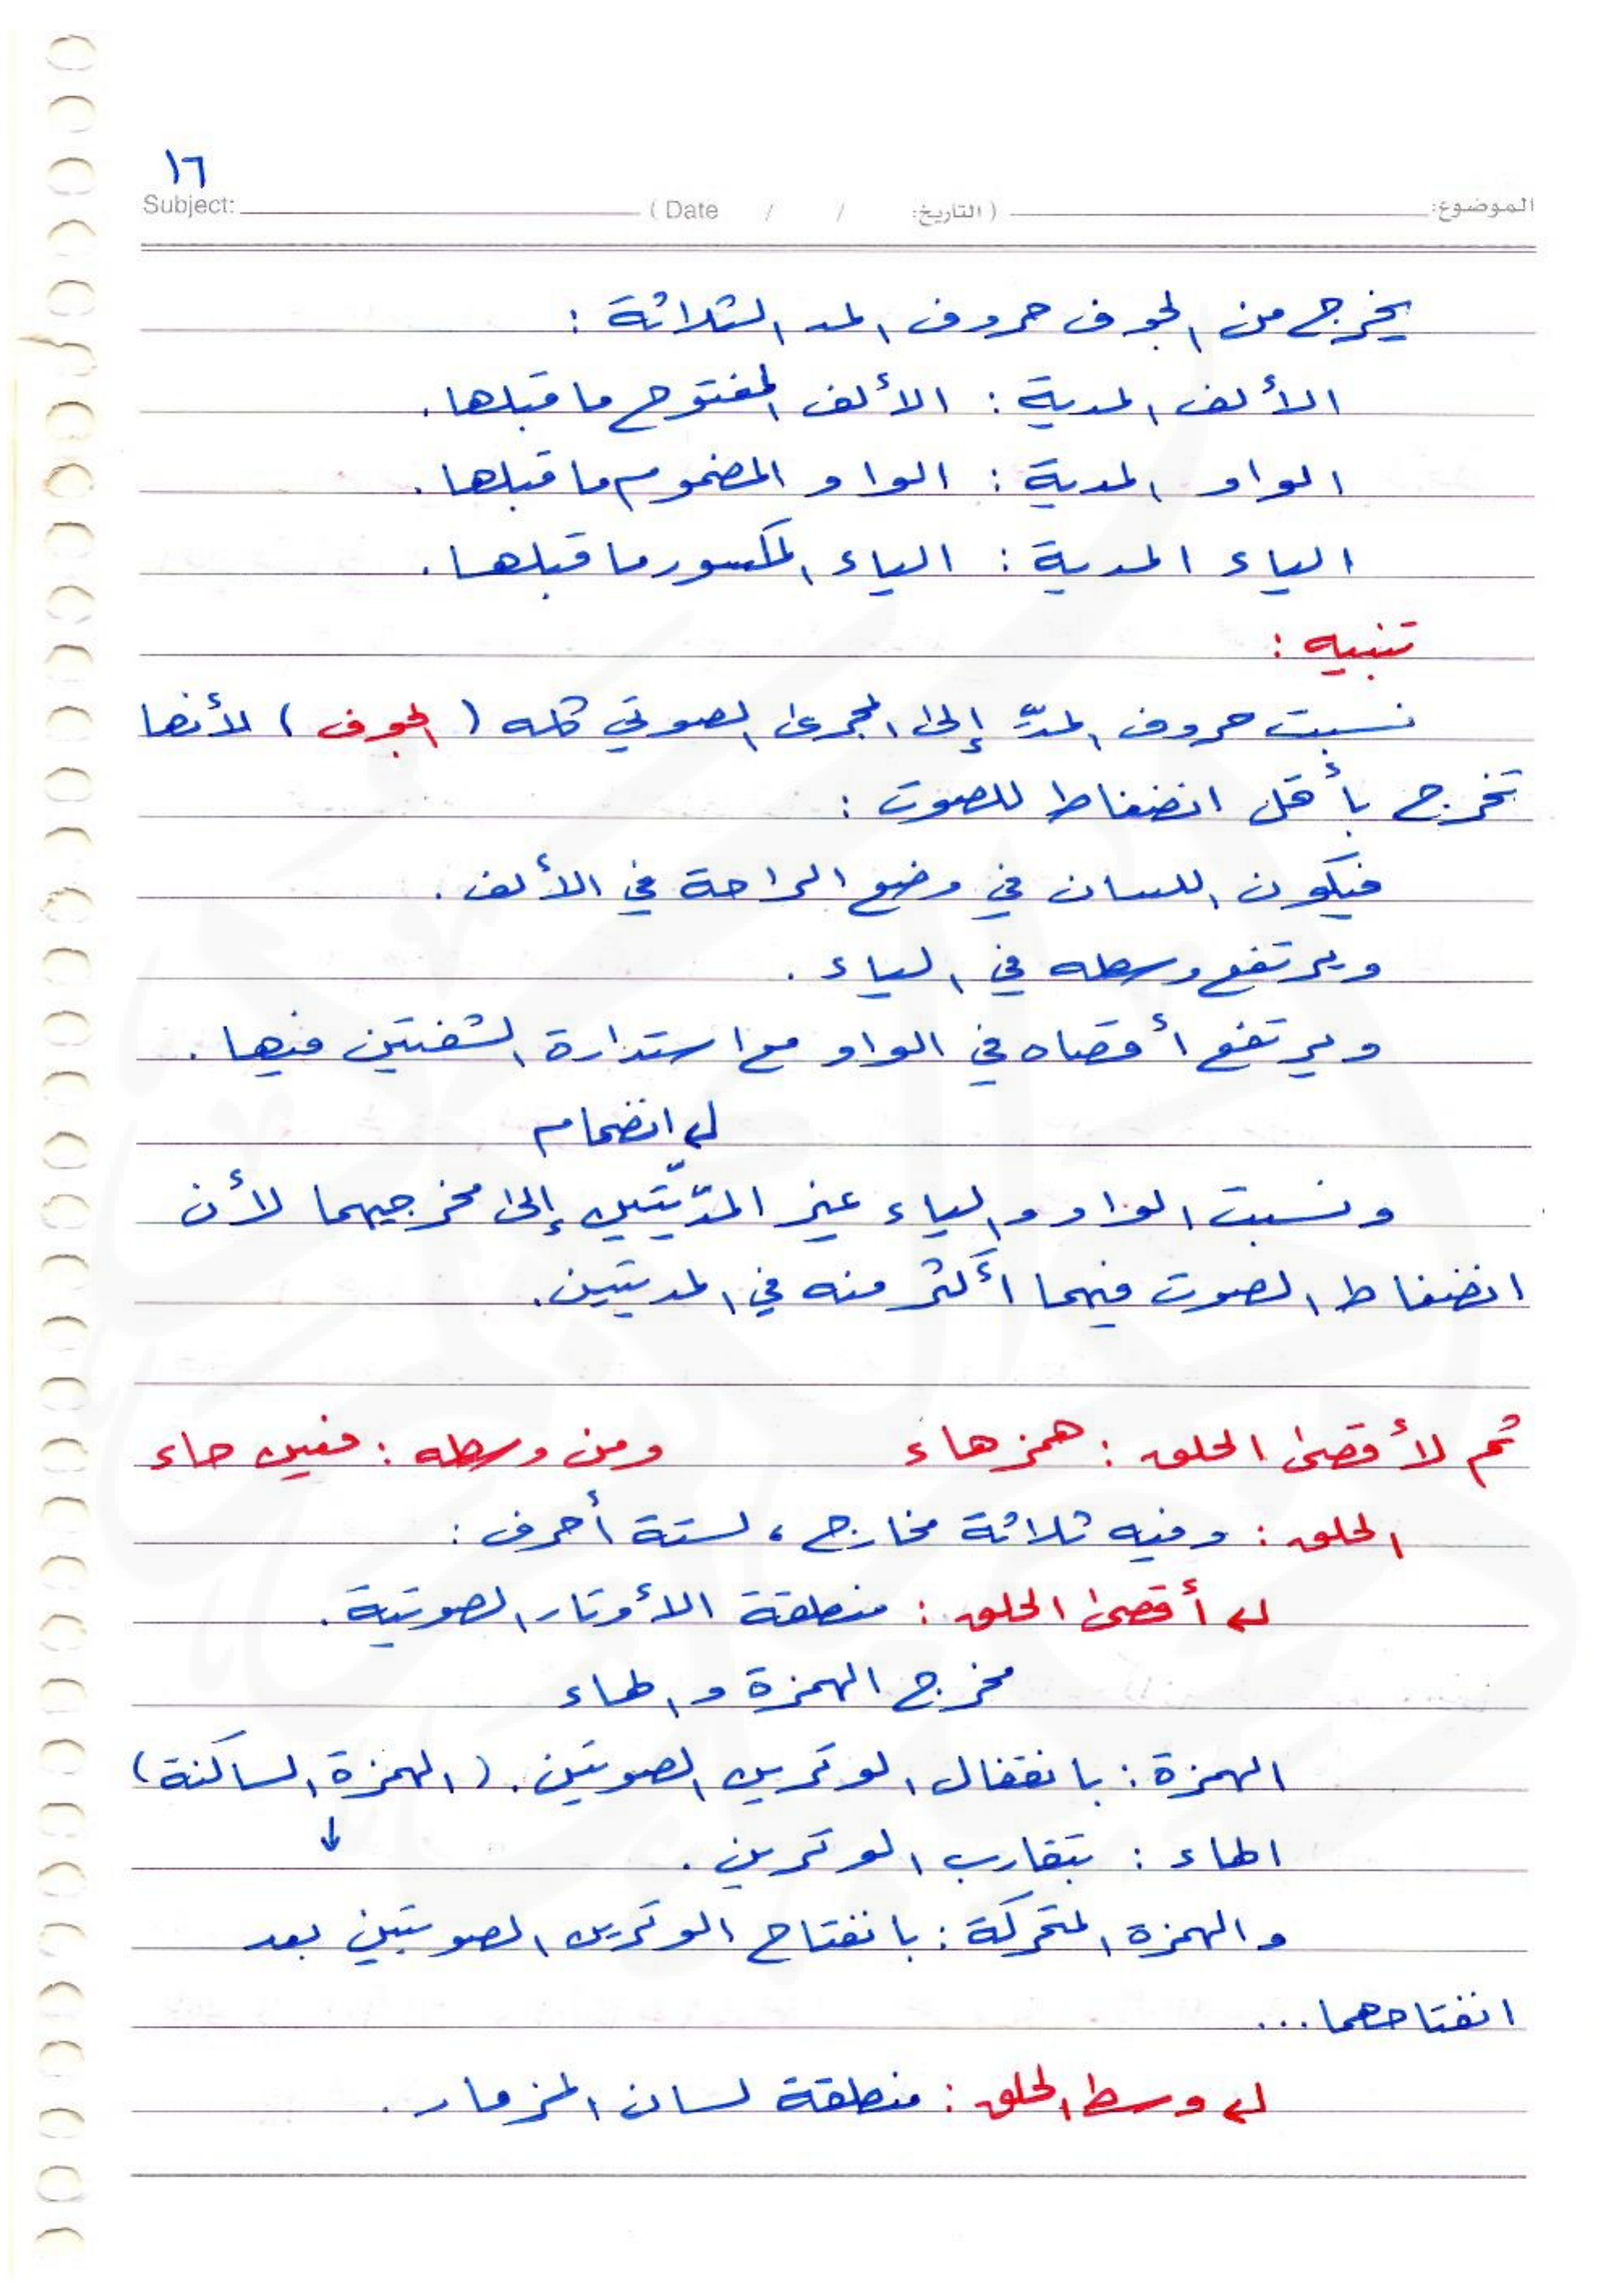 ١٦
Subject: (Date / / التاريخ:) الموضوع:
يخرج من الجوف حروف المد الثلاثة :
الألف المدية : الألف المفتوح ما قبلها .
الواو المدية : الواو المضموم ما قبلها .
الياء المدية : الياء المكسور ما قبلها .
تنبيه :
نسبت حروف المدّ إلى المجرى الصوتي كله ( الجوف ) لأنها
تخرج بأقل انضغاط للصوت :
فيكون اللسان في وضع الراحة في الألف .
ويرتفع وسطه في الياء .
ويرتفع أقصاه في الواو مع استدارة الشفتين فيها .
انضمام
ونسبت الواو والياء غير المدّيّتين إلى مخرجيهما لأن
انضغاط الصوت فيهما أكثر منه في المديتين .
ثم لأقصى الحلق : همز هاء ومن وسطه : فعين حاء
الحلق : وفيه ثلاثة مخارج ، لستة أحرف :
أقصى الحلق : منطقة الأوتار الصوتية .
مخرج الهمزة والهاء
الهمزة : بانقفال الوترين الصوتين . ( الهمزة الساكنة )
↓
الهاء : بتقارب الوترين .
والهمزة المتحركة : بانفتاح الوترين الصوتيين بعد
انفتاحهما ...
وسط الحلق : منطقة لسان المزمار .